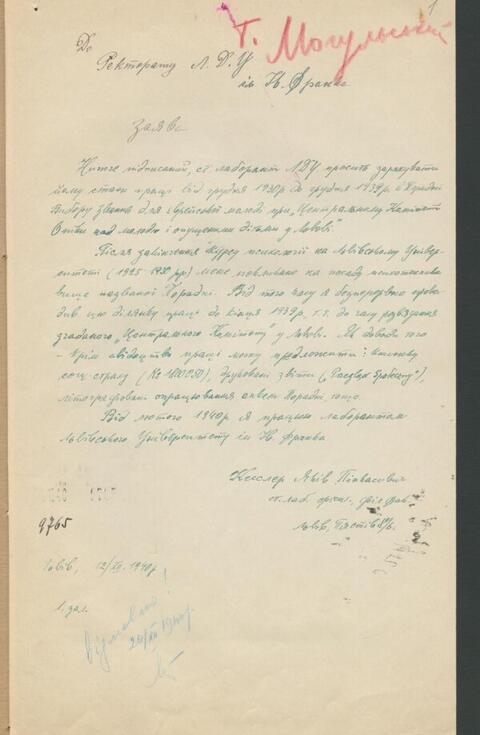 1
т. Могульський
До
Ректорату Л.Д.У
ім Ів. Франка
Заява
Нижче підписаний, ст. лаборант ЛДУ просить зарахувати
йому стаж праці від грудня 1930р до грудня 1939р в Порадні
Вибору Звання для єврейської молоді при „Центральному Комітеті
Опіки над молоддю і опущеними дітьми у Львові".
Після закінчення курсу психології на Львівському Універ-
ситеті (1925 1930 рр) мене покликано на посаду психотехніка
вище названої Порадні. Від того часу я безперервно прова-
див цю ділянку праці до кінця 1939р., т.т. до часу розв'язання
згаданого „Центрального Комітету" у Львові. Як доводи того
– крім свідоцтво праці можу предложити:
соц. страху друковані звіти
літографовані опрацювання анкет Порадні тощо.
Від лютого 1940р я працюю лаборантом
Львівського Університету ім Ів Франка
Кесслер Яків
ст. лаб.
Львів,
9765
Львів, 12/XII. 1940р
1. зал.
20/XII 1940р.